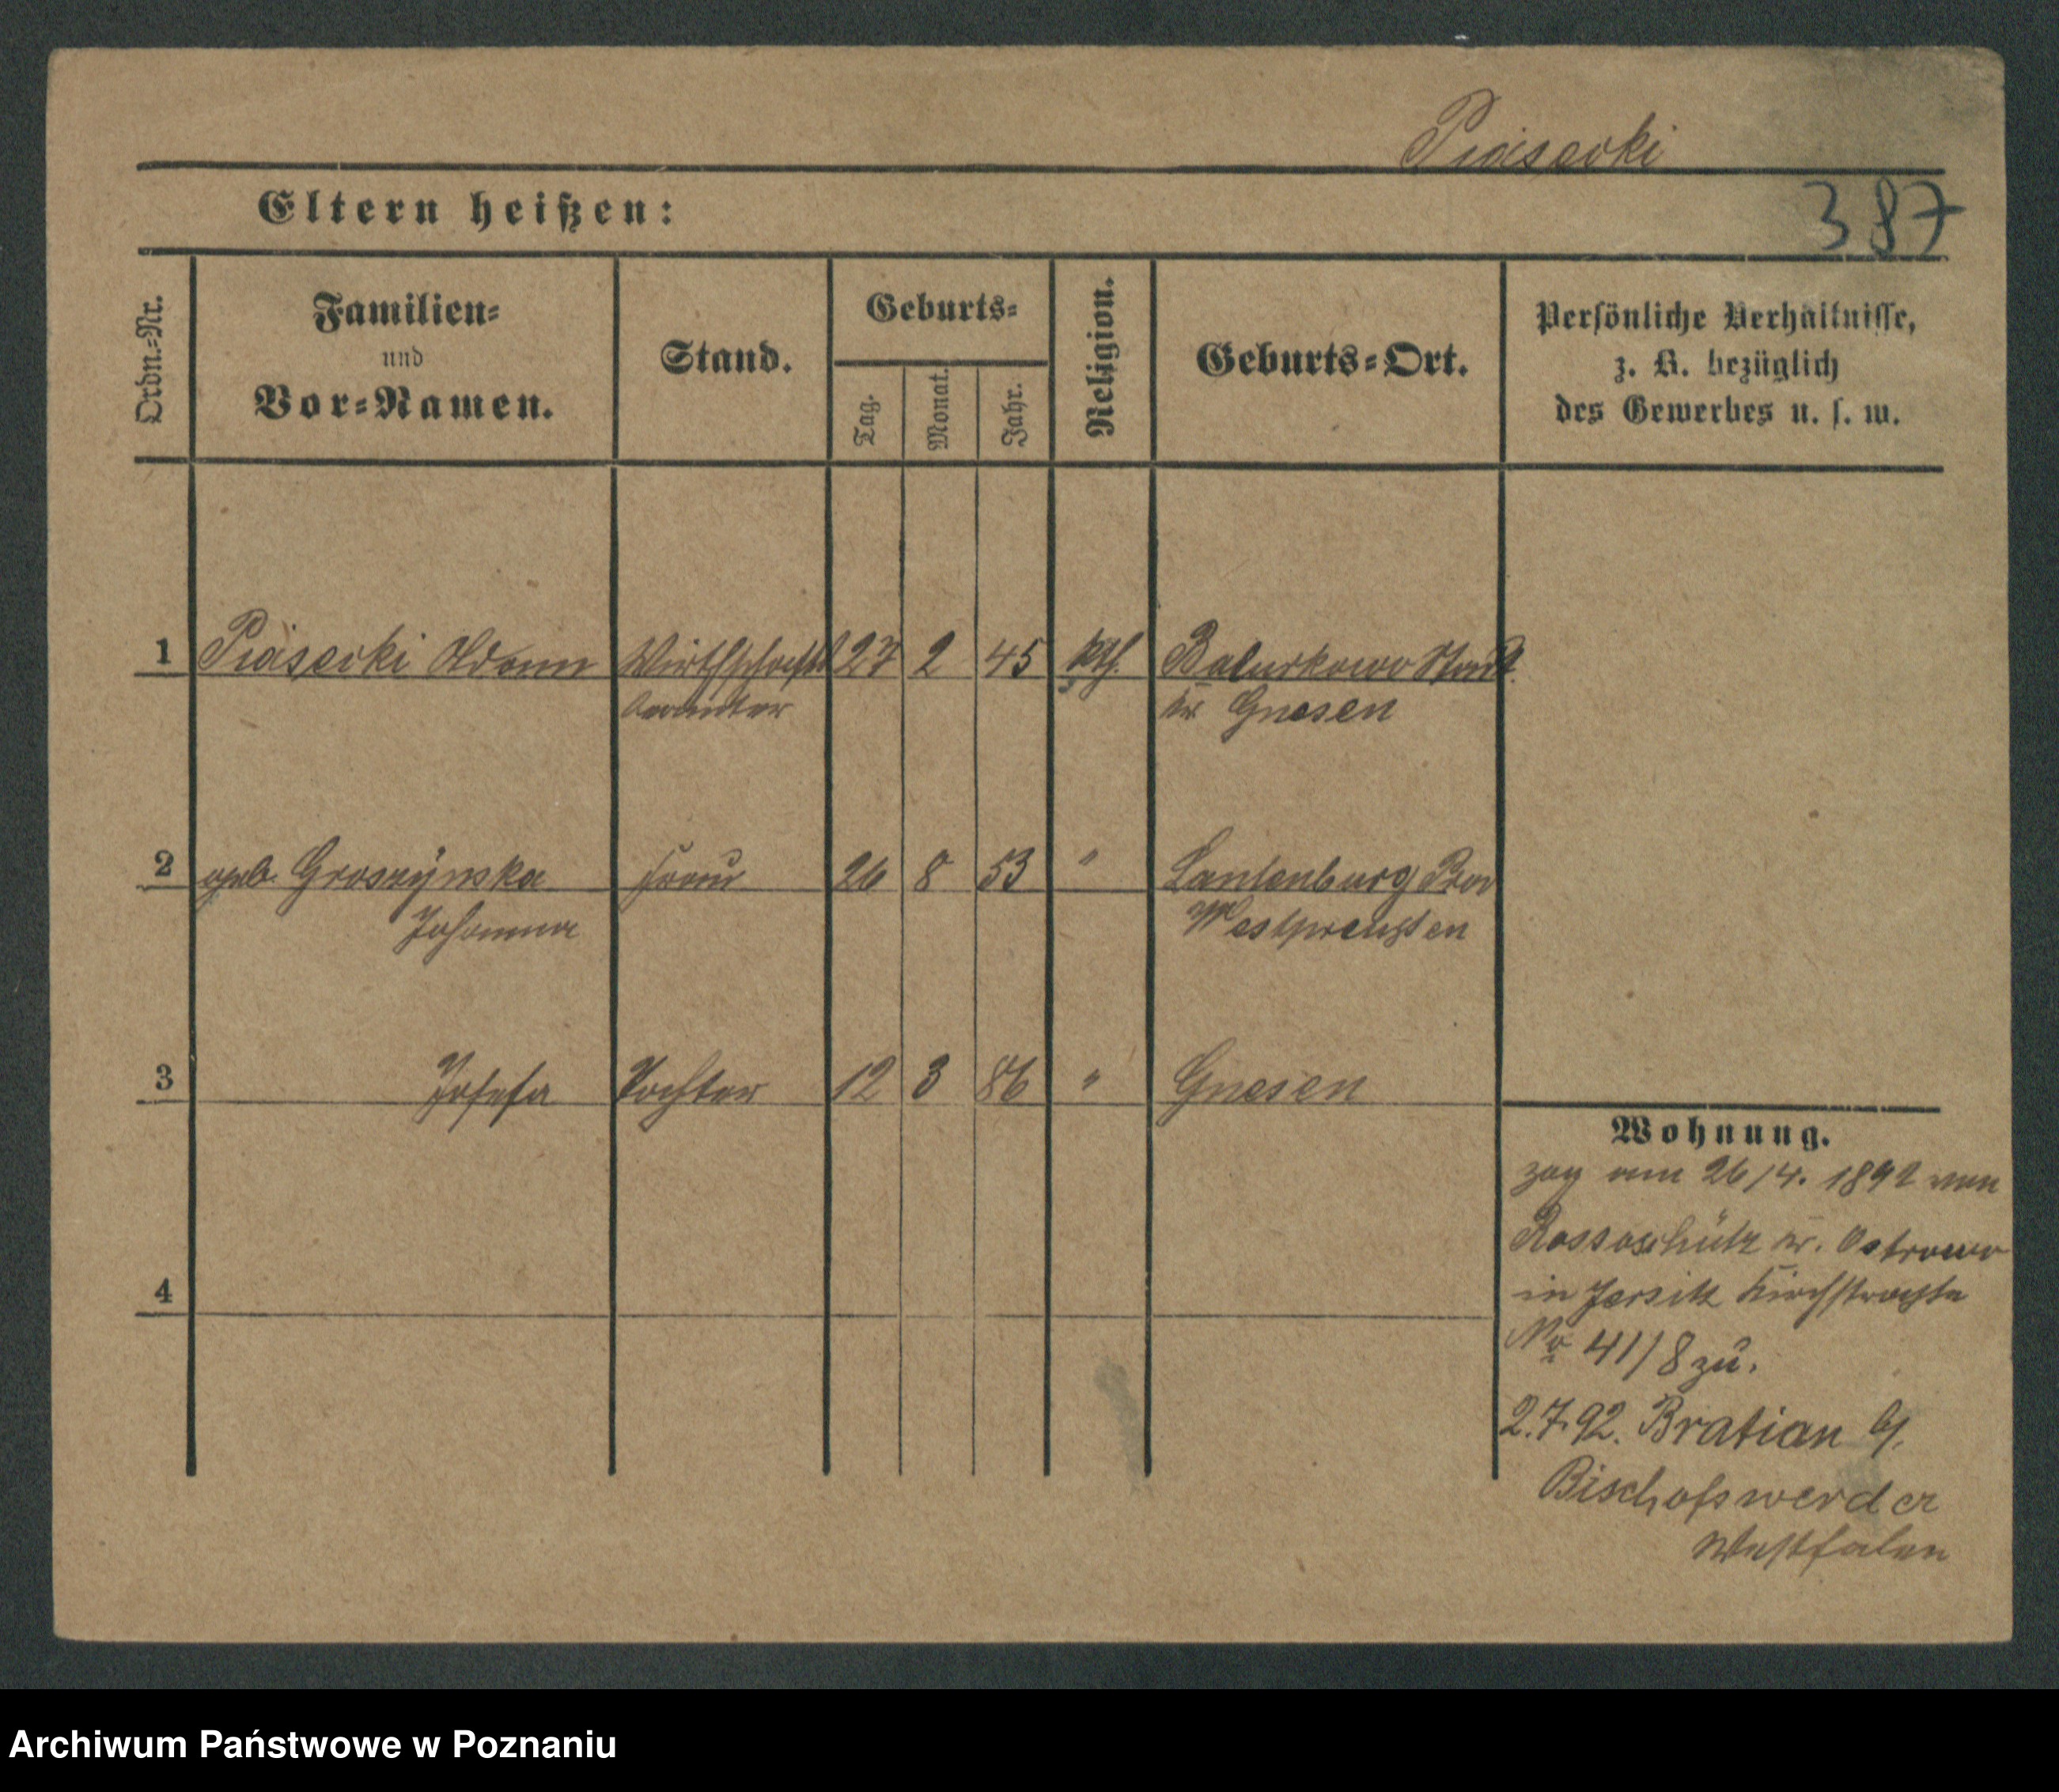 Piasecki
Eltern heißen:
387
Ordn.-Nr.
Familien-
und
Vor-Namen.
Stand.
Geburts-
Tag.
Monat.
Jahr.
Religion.
Geburts-Ort.
Persönliche Verhältnisse,
z. B. bezüglich
des Gewerbes u. s. w.
1 Piasecki Adam Wirthschafts 27 2 45 kth.
beamter Kr Gnesen
2 geb. Groszÿnska Frau 26 8 53 " Lautenburg Prov
Johanna Westpreußen
3 Josefa Tochter 12 3 86 " Gnesen
4
Wohnung.
zog am 26/4. 1892 von
Rossoschütz Kr. Ostrowo
in Jersitz Kirchstraße
No 41/8 zu.
2.7.92. Bratian b/.
Bischofswerder
Westfalen
Archiwum Państwowe w Poznaniu